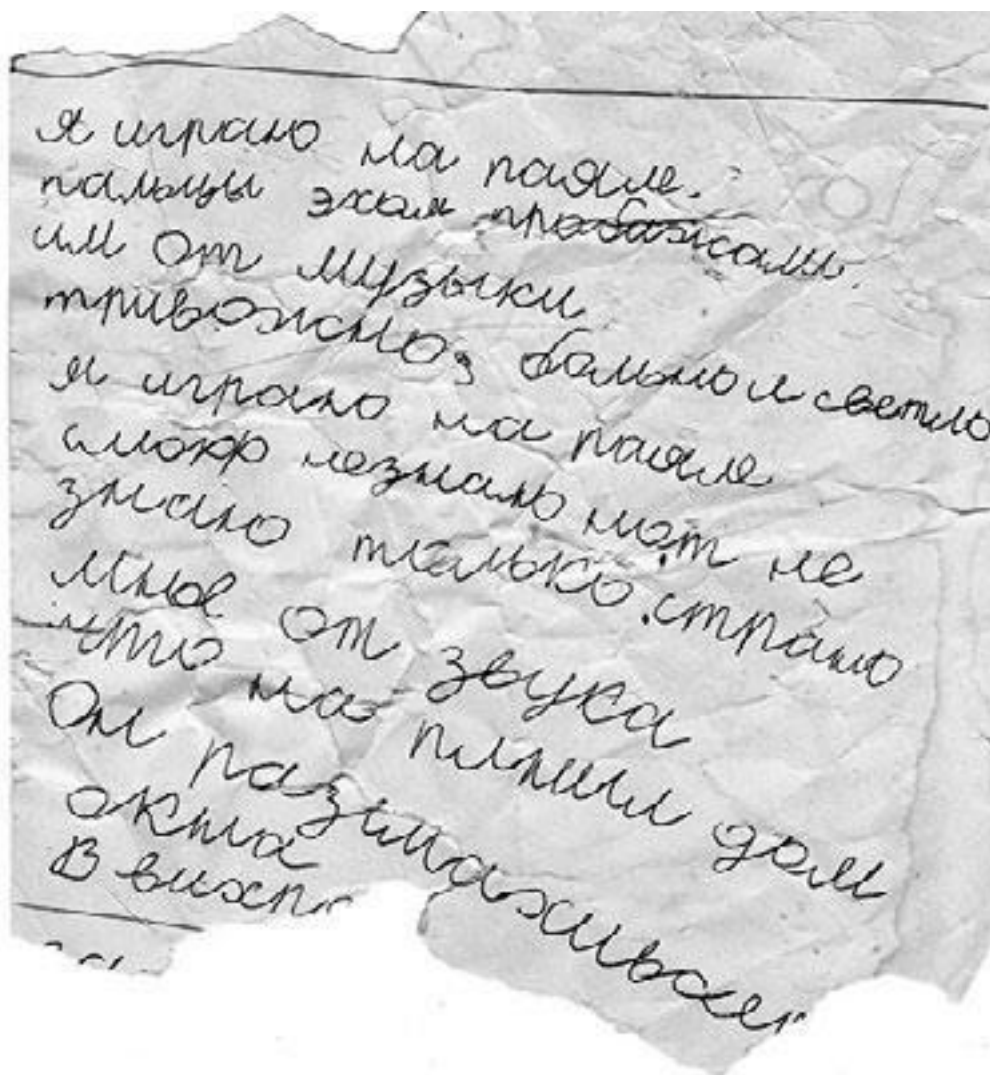 я играю на раяле.
пальцы эхам пробижали.
им от музыки
тривожно, больно и светло
я играю на раяле
слофф незнаю нот не
знаю только страно
мне от звука
что на плнил дом
Он
окна
В вихр